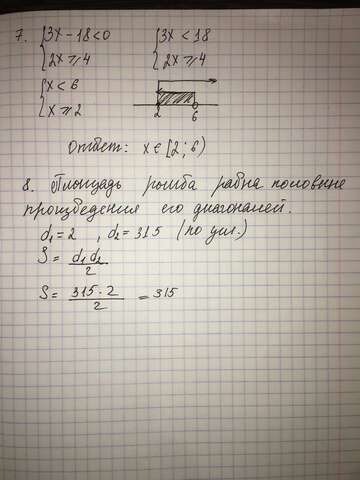 7. { 3x - 18 < 0   { 3x < 18
{ 2x ≥ 4   { 2x ≥ 4
{ x < 6
{ x ≥ 2   2   6
Ответ: x ∈ [2; 6)
8. Площадь ромба равна половине
произведения его диагоналей.
d₁ = 2 , d₂ = 315 (по усл.)
S = d₁d₂/2
S = 315 · 2/2 = 315